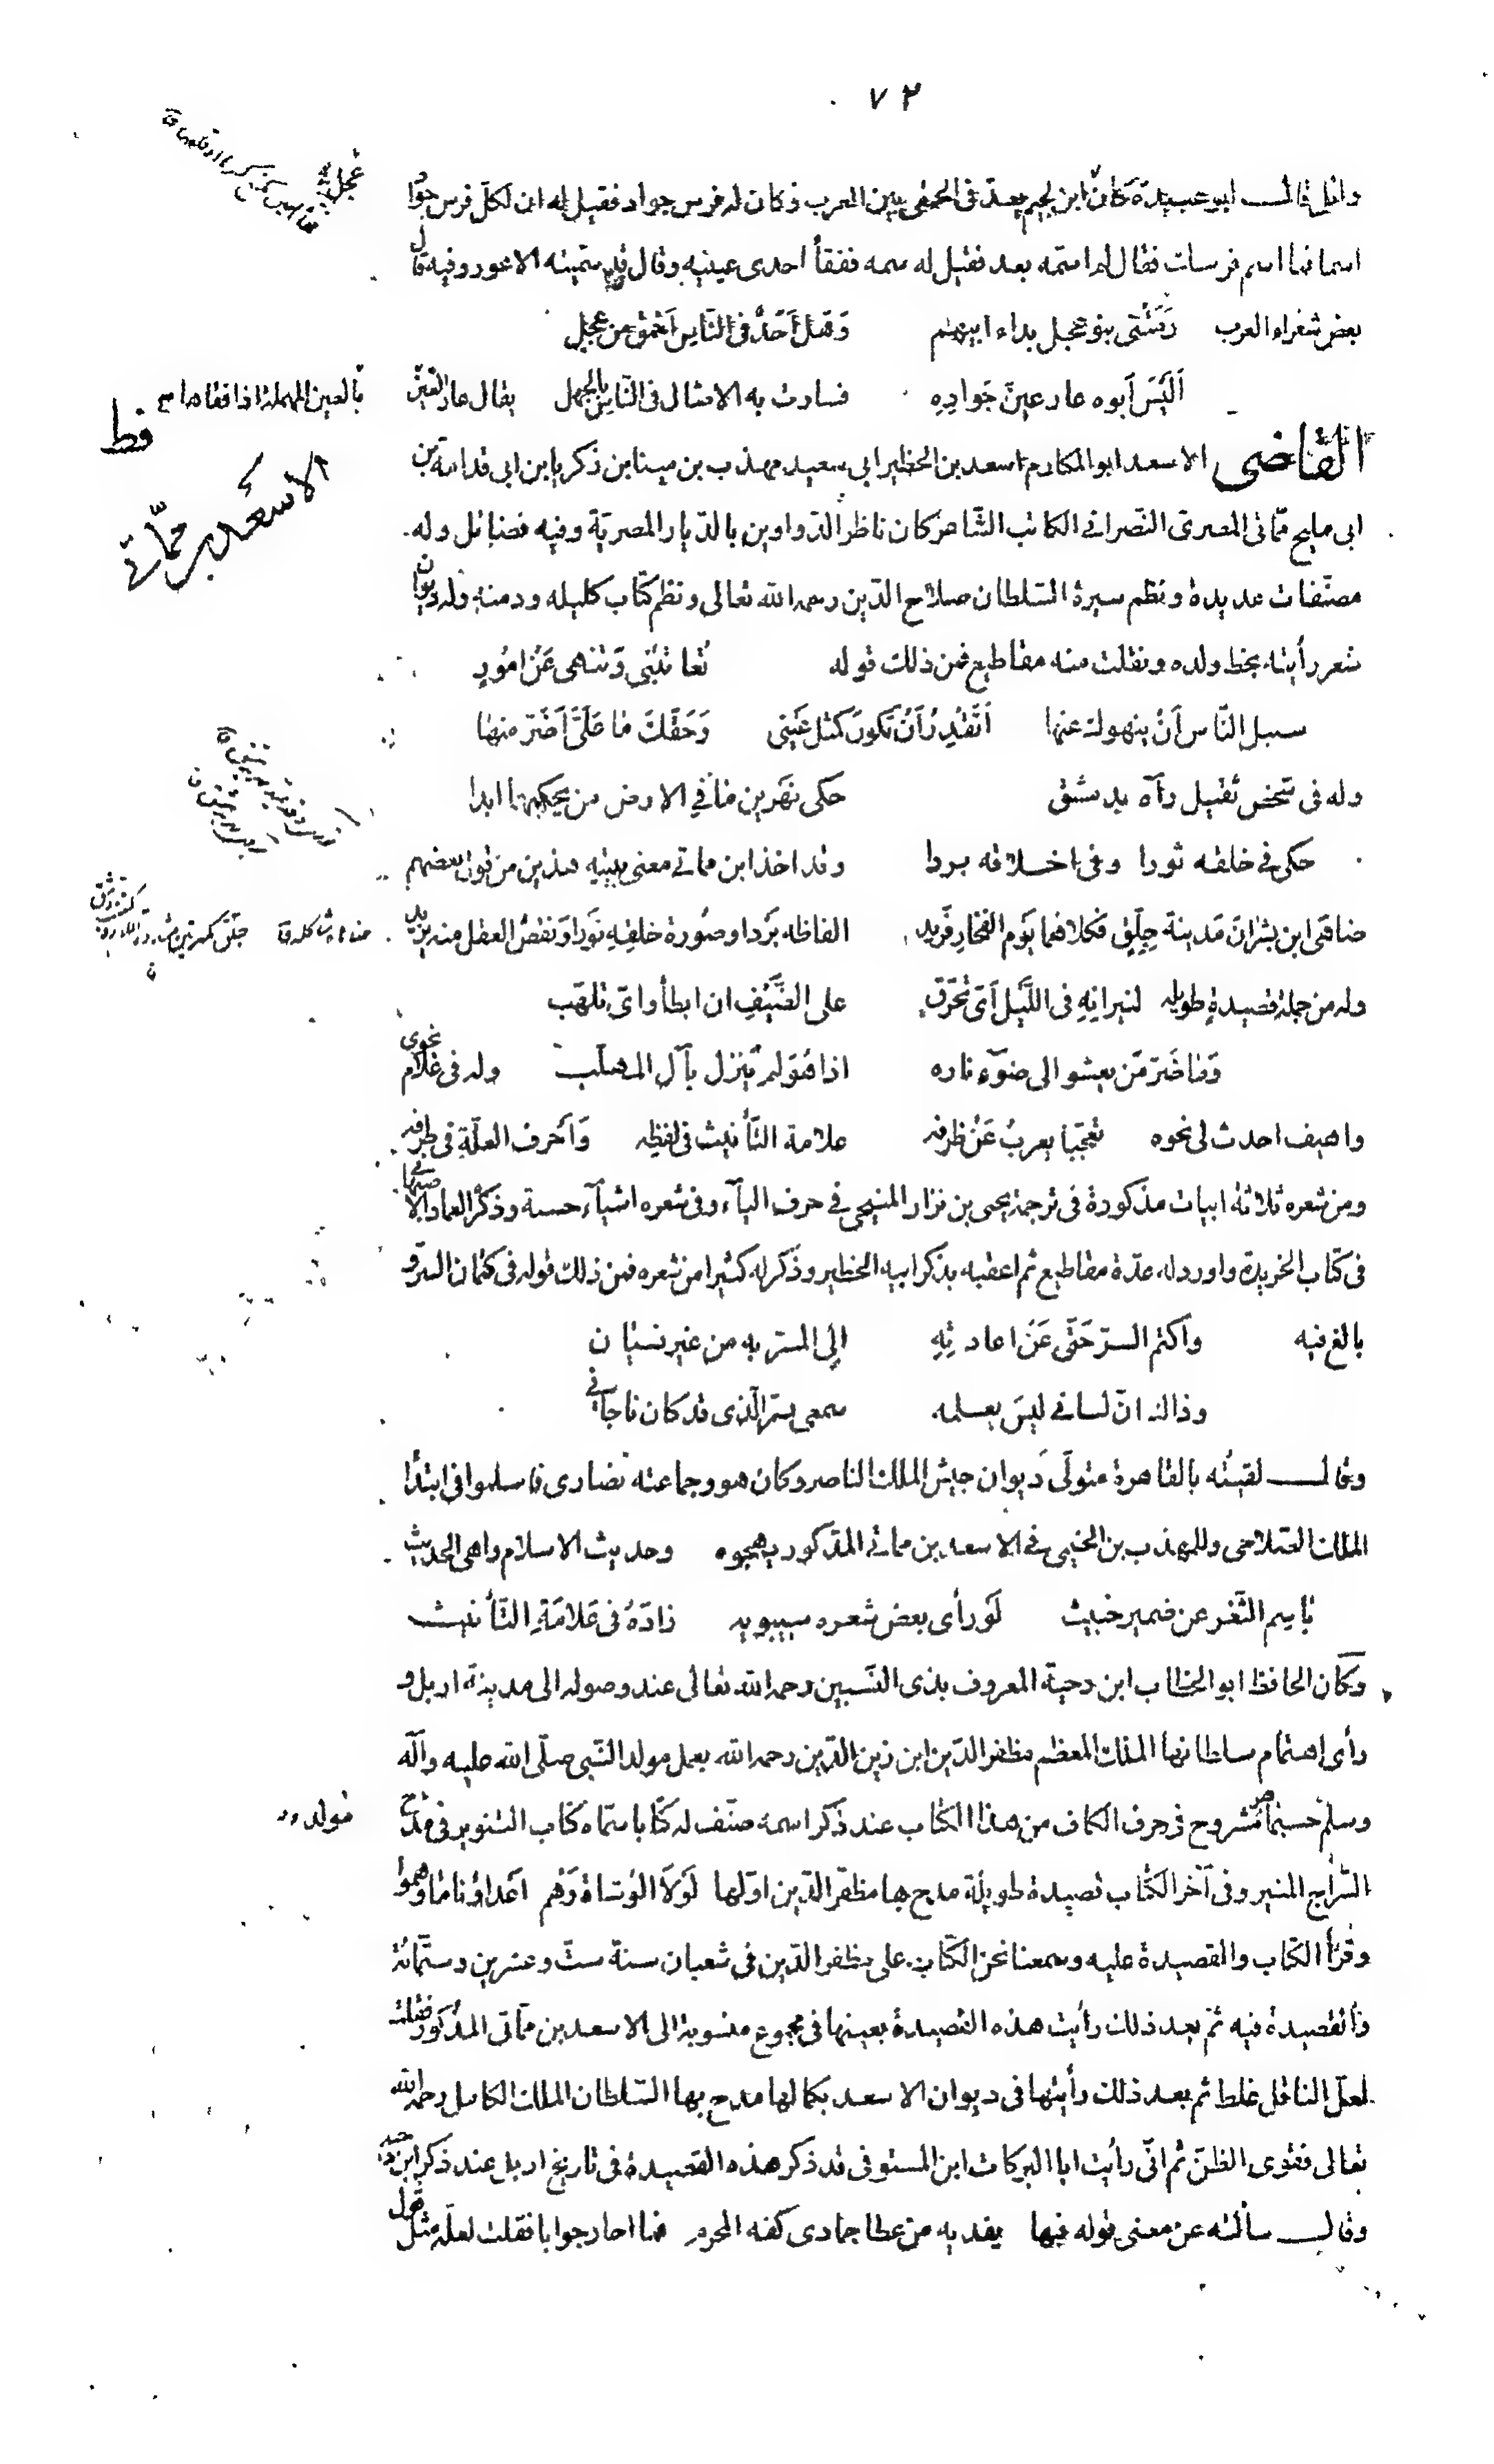 ٧٢
وائل قال ابو عبيدة كان ابن لجيم يعدّ فى الحمقى بين العرب وكان له فرس جواد فقيل له ان لكلّ فرس جواد
اسما فما اسم فرسك فقال لم اسمّه بعد فقيل له سمه ففقأ احدى عينيه وقال قد سمّيته الاعور وفيه قال
بعض شعراء العرب رَمَتْنى بنو عجل بداء ابيهم وَهَل اَحَدٌ فى النّاس اَحْمَق من عجل
اَلَيْسَ اَبوه عار عينَ جَوادِهِ فسارت به الامثال فى النّاس بالجهل يقال عار العين
بالعين المهملة اذا فقاها
القاضى الاسعد ابو المكارم اسعد بن الخطير ابى سعيد مهذب بن مينا بن زكريا بن ابى قدامة بن
ابى مليح ممّاتى المصرى النصرانى الكاتب الشّاعر كان ناظر الدّواوين بالدّيار المصريّة وفيه فضائل وله
الاسعد بن ممّاتى
مصنّفات عديدة ونظم سيرة السّلطان صلاح الدّين رحمه الله تعالى ونظم كتاب كليله ودمنه وله ديوان
شعر رأيته بخط ولده ونقلت منه مقاطيع فمن ذلك قوله تُعاتبُنى وَتَنهى عَنْ امُورٍ
سبيل النّاس اَنْ ينهوك عنها اَتَقْدِرُ اَنْ تَكونَ كمثل عَيْنى وَحَقّكَ مَا عَلَىَّ اَضَرّ منها
وله فى شخص ثقيل رآه بدمشق حكى نهرين ما فى الارض من يحكيهما ابدا
حكى فى خلقه ثورا وفى اخلاقه بردا وقد اخذ ابن مماتى معنى بيتيه هذين من قول بعضهم
ضاهَى ابن بشران مَدينة جِلِّقٍ فكلاهما يَوم الفخارِ فَريد الفاظه بَردا وصُورة خلقِهِ ثَوْرا وَنقصُ العقل منه يزيد
وله من جملة قصيدةٍ طويله لنيرانِهِ فى اللّيل اَىّ تحَرّقٍ على الضَّيْفِ ان ابطأ واىّ تلهّب
وَما ضَرّ مَن يعشو الى ضوَء ناره اذا هُوَ لم يَنزل بآل المهلّب وله فى غلام نحوى
واهيف احدث لى نحوه تعَجّبا يعربُ عَنْ ظرفه علامة التّأنيث فى لفظه وَاَحرف العلّة فى طرفه
ومن شعره ثلاثة ابيات مذكورة فى ترجمة يحيى بن نزار المنبجى فى حرف الياء وفى شعره اشياء حسنة وذكره العماد الاصبهانى
فى كتاب الخريدة واورد له عدّة مقاطيع ثم اعقبه بذكر ابيه الخطير وذكر له كثيرا من شعره فمن ذلك قوله فى كتمان السرّ و
بالغ فيه واكتم السرّ حَتّى عَنْ اعادتِهِ اِلى المسرّ به من غير نسيان
وذاك انّ لسانى ليسَ يعلمه سمعى بسرّ الّذى قد كان ناجانى
وقال لقيتُه بالقاهرة متولّى ديوان جيش الملك الناصر وكان هو وجماعته نصارى فاسلموا فى ابتدأ
الملك الصّلاحى وللمهذب بن الخيمى فى الاسعد بن مماتى المذكور يهجوه وحديث الاسلام واهى الحديث
باسم الثّغر عن ضمير خبيث لَو رأى بعض شعره سيبويه زادَهُ فى عَلامَةِ التّأنيث
وكان الحافظ ابو الخطاب ابن دحية المعروف بذى النّسبين رحمه الله تعالى عند وصوله الى مدينة اربل و
رأى اهتمام سلطانها الملك المعظم مظفر الدّين ابن زين الدّين رحمه الله بعمل مولد النّبى صلّى الله عليه وآله
وسلّم حسبما هو مشروح فى حرف الكاف من هذا الكتاب عند ذكر اسمه صنّف له كتابا سمّاه كتاب التنوير فى مدح
السّراج المنير وفى آخر الكتاب قصيدة طويلة مدح بها مظفّر الدّين اوّلها لَولاَ الوُشاة وَهُم اَعداؤنا ما وهموا
وقرأ الكتاب والقصيدة عليه وسمعنا نحن الكتاب على مظفر الدّين فى شعبان سنة ستّ وعشرين وستّمائة
والقصيدة فيه ثمّ بعد ذلك رأيت هذه القصيدة بعينها فى مجموع منسوبة الى الاسعد بن ممّاتى المذكور فقلت
لعلّ الناقل غلط ثم بعد ذلك رأيتها فى ديوان الاسعد بكمالها مدح بها السّلطان الملك الكامل رحمه الله
تعالى فقوى الظنّ ثم انّى رأيت ابا البركات ابن المستوفى قد ذكر هذه القصيدة فى تاريخ اربل عند ذكر ابن دحيه
وقال سألته عن معنى قوله فيها يفديه من عطا جمادى كفه المحرم فما احار جوابا فقلت لعلّه مثل قول